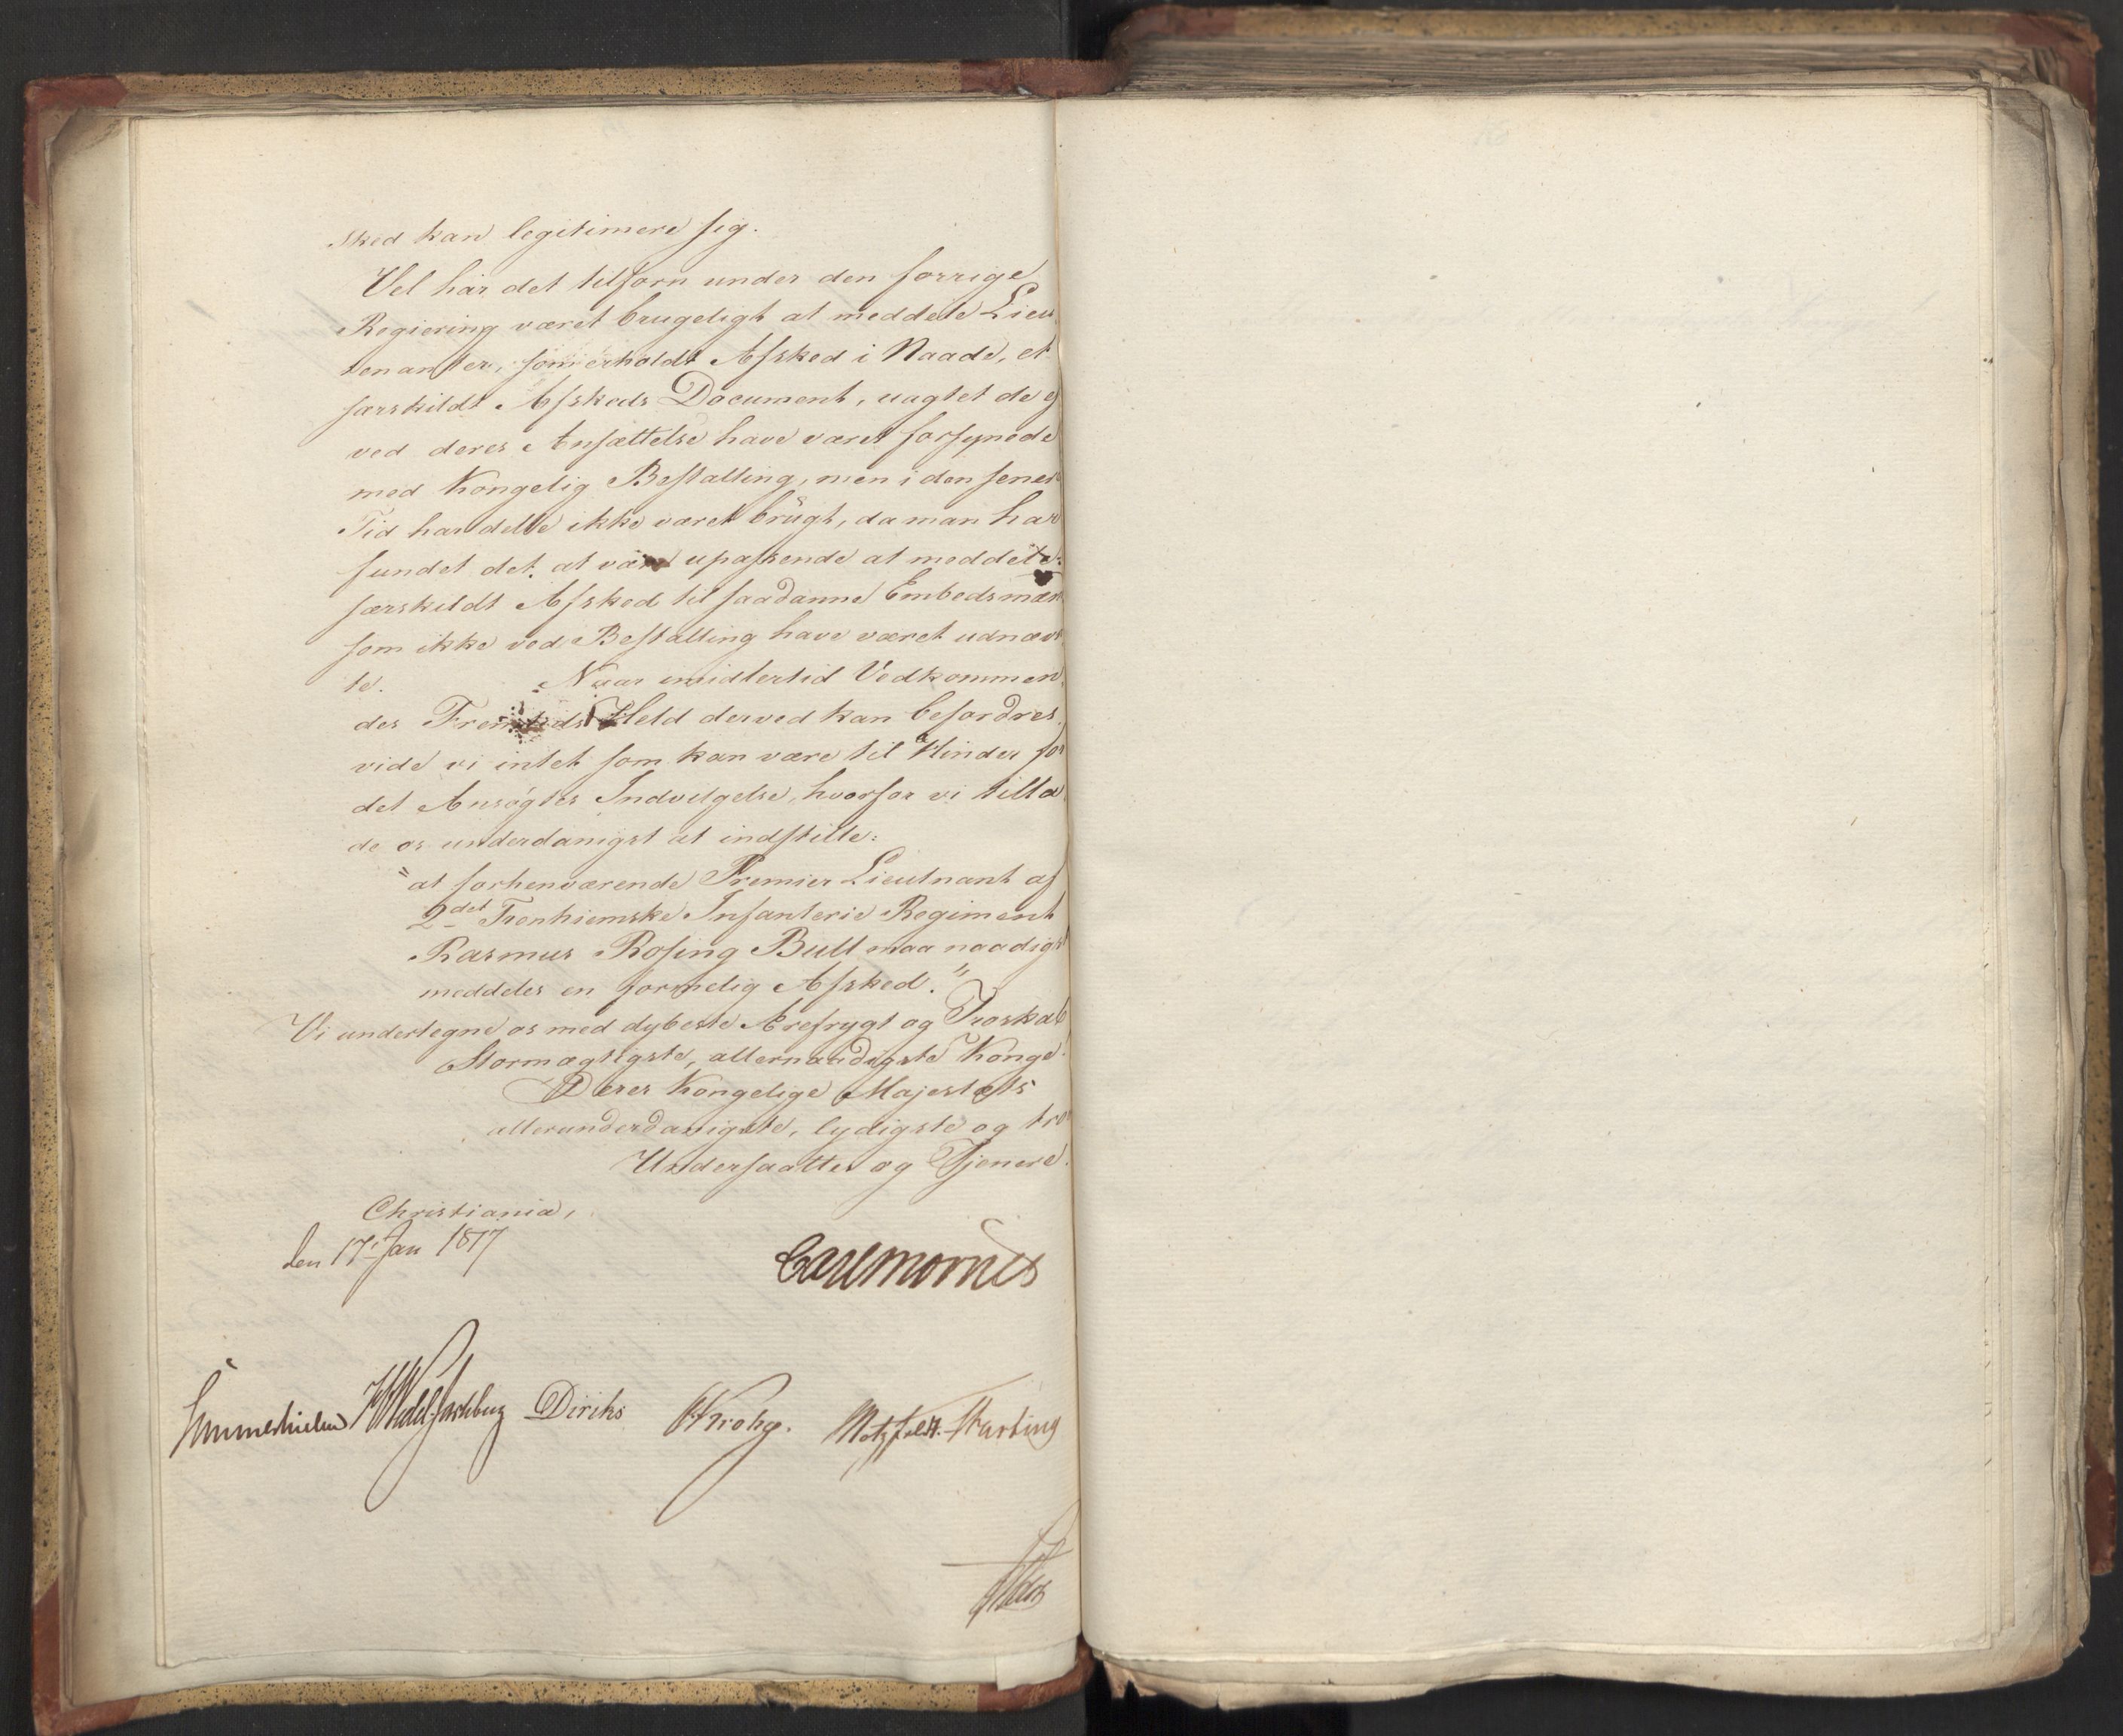 sked kan legitimere sig.
Vel har det tilforn under den forrige
Regiering været brugeligt at meddele Lieu
tenanter, som erholdt Afsked i Naade, et
særskildt Afskeds Document, uagtet de ej
ved deres Ansættelse have været forsynede
med Kongelig Bestalling, men i den senere
Tid har dette ikke været brugt, da man har
fundet det at være upassende at meddele
særskildt Afsked til saadanne Embedsmæn
som ikke ved Bestalling have været udnævn
te. Naar imidlertid Vedkommen
des Fremtids Held derved kan befordres
vide vi intet som kan være til Hinder for
det Ansøgtes Indvilgelse, hvorfor vi tilla
de os underdanigst at indstille:
"at forhenværende Premier Lieutnant af
2det Tronhiemske Infanterie Regiment
Rasmus Rosing Bull maa naadigst
meddeles en formelig Afsked."
Vi undertegne os med dybeste Ærefrygt og Troskab
Stormægtigste, allernaadigste Konge!
Deres Kongelige Majestæts
allerunderdanigste, lydigste og tro
Undersaatter og Tjenere.
Christiania,
den 17. Jan 1817
Carl Mörner
Sommerhielm HWedel Jarlsberg Diriks CKrohg. Motzfeldt. Hartwig